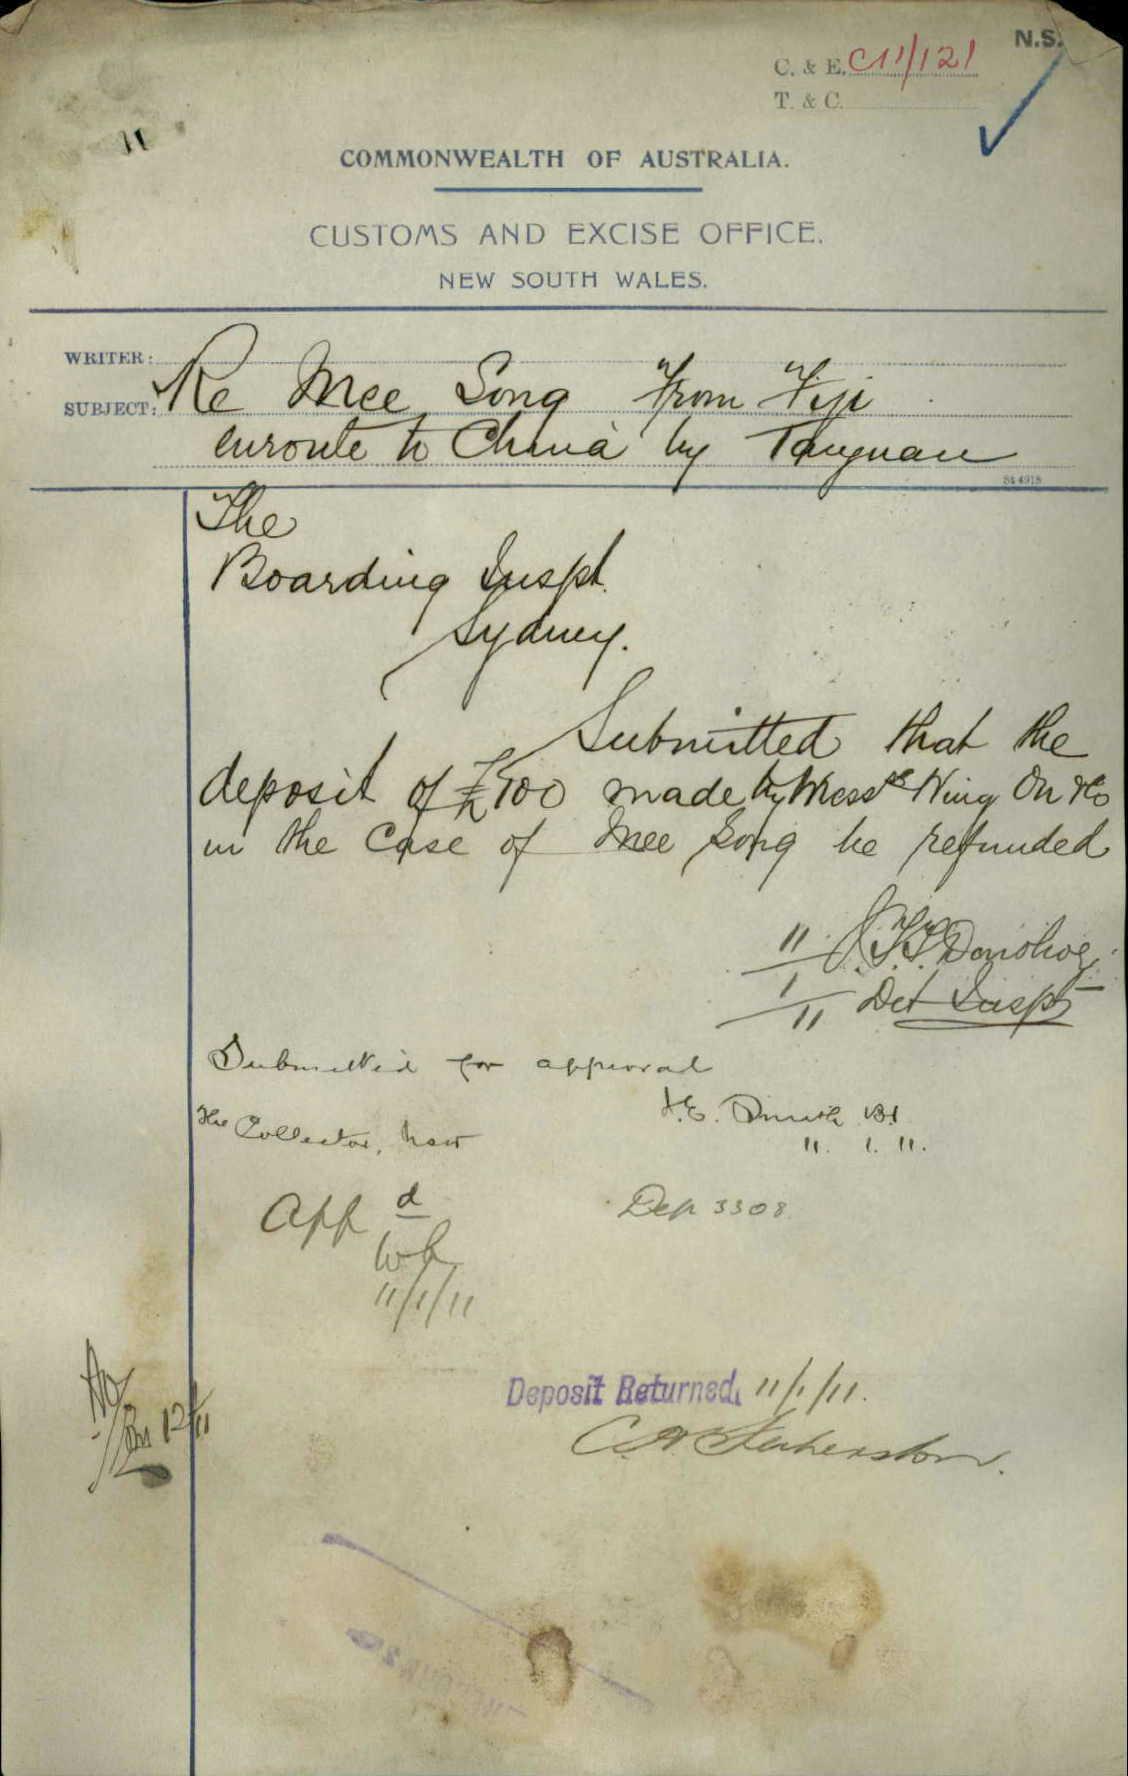 N.S.
C. & E. C11/121
T. & C.
11
COMMONWEALTH OF AUSTRALIA.
CUSTOMS AND EXCISE OFFICE.
NEW SOUTH WALES.
WRITER:
SUBJECT: Re Mee Song From Fiji
enroute to China by Taiyuan
St 4918
The
Boarding Inspt.
Sydney.
Submitted that the
deposit of £100 made by Messrs Wing On & Co
in the case of Mee Song be refunded
J.T.T. Donohoe
Det Inspr
11/1/11
Submitted for approval
The Collector, NSW
H.E. Smith B.I.
11. 1. 11.
App d
Dep 3308
11/1/11
Deposit Returned, 11/1/11.
12/1/11